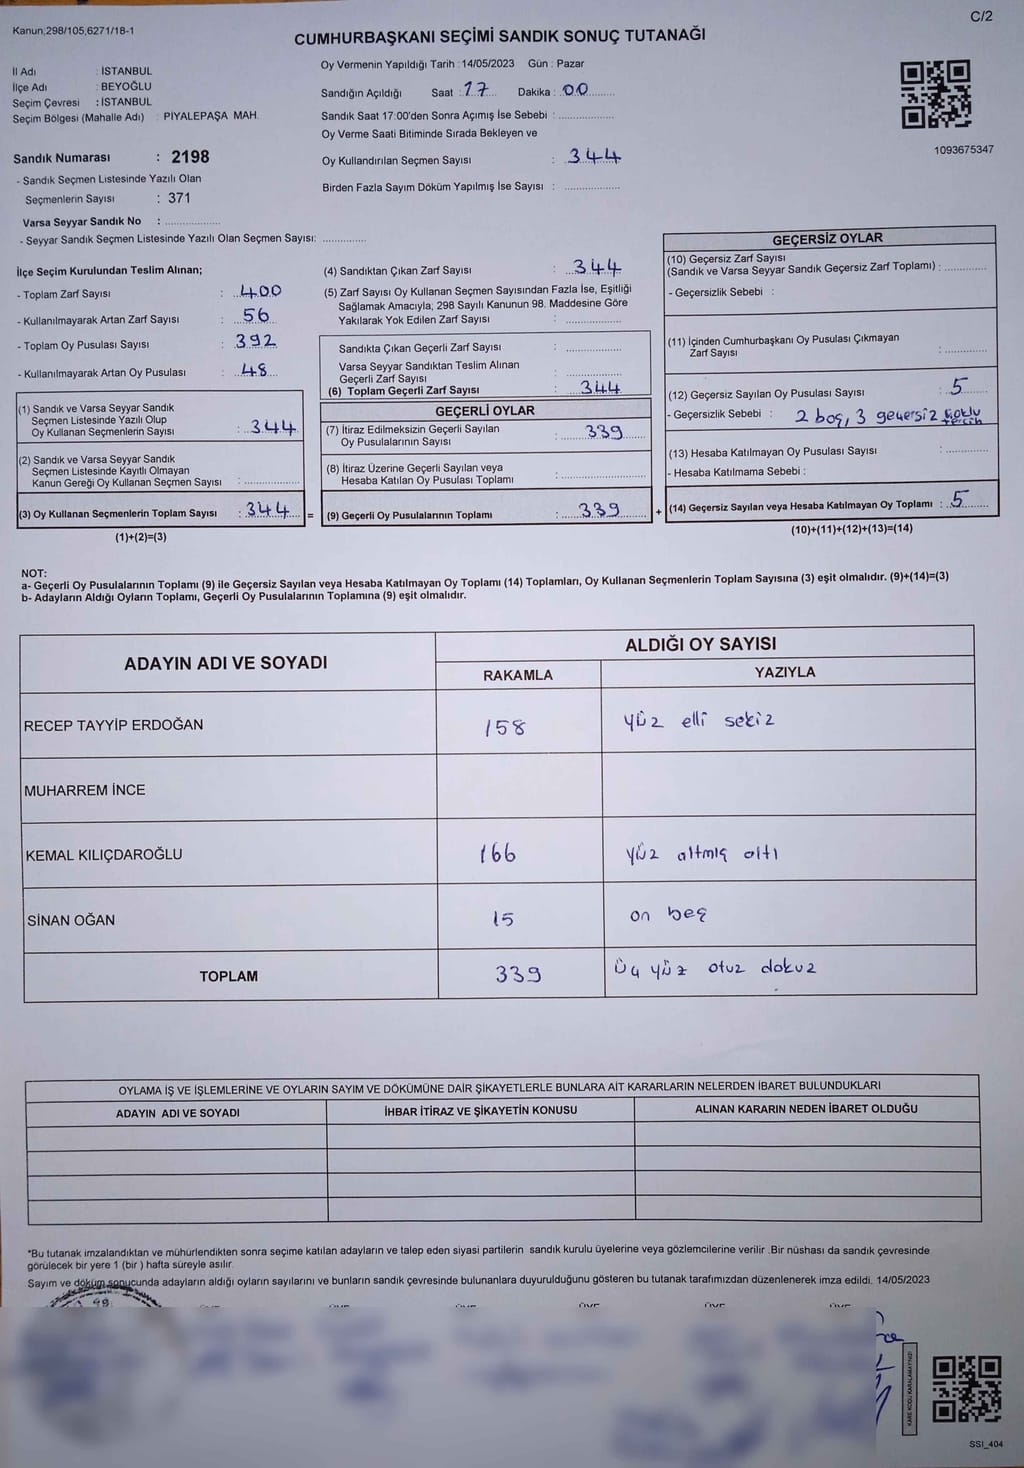 Kanun;298/105,6271/18-1
C/2
CUMHURBAŞKANI SEÇİMİ SANDIK SONUÇ TUTANAĞI
İl Adı : İSTANBUL
İlçe Adı : BEYOĞLU
Seçim Çevresi : İSTANBUL
Seçim Bölgesi (Mahalle Adı) : PİYALEPAŞA MAH.
Sandık Numarası : 2198
- Sandık Seçmen Listesinde Yazılı Olan
Seçmenlerin Sayısı : 371
Varsa Seyyar Sandık No : ....................
- Seyyar Sandık Seçmen Listesinde Yazılı Olan Seçmen Sayısı: ................
Oy Vermenin Yapıldığı Tarih : 14/05/2023 Gün : Pazar
Sandığın Açıldığı Saat : 17 Dakika : 00
Sandık Saat 17:00'den Sonra Açımış İse Sebebi : ....................
Oy Verme Saati Bitiminde Sırada Bekleyen ve
Oy Kullandırılan Seçmen Sayısı : 344
Birden Fazla Sayım Döküm Yapılmış İse Sayısı : ....................
1093675347
İlçe Seçim Kurulundan Teslim Alınan;
- Toplam Zarf Sayısı : 400
- Kullanılmayarak Artan Zarf Sayısı : 56
- Toplam Oy Pusulası Sayısı : 392
- Kullanılmayarak Artan Oy Pusulası : 48
(1) Sandık ve Varsa Seyyar Sandık
Seçmen Listesinde Yazılı Olup
Oy Kullanan Seçmenlerin Sayısı : 344
(2) Sandık ve Varsa Seyyar Sandık
Seçmen Listesinde Kayıtlı Olmayan
Kanun Gereği Oy Kullanan Seçmen Sayısı : ....................
(3) Oy Kullanan Seçmenlerin Toplam Sayısı : 344 =
(1)+(2)=(3)
(4) Sandıktan Çıkan Zarf Sayısı : 344
(5) Zarf Sayısı Oy Kullanan Seçmen Sayısından Fazla İse, Eşitliği
Sağlamak Amacıyla; 298 Sayılı Kanunun 98. Maddesine Göre
Yakılarak Yok Edilen Zarf Sayısı : ....................
Sandıkta Çıkan Geçerli Zarf Sayısı : ....................
Varsa Seyyar Sandıktan Teslim Alınan
Geçerli Zarf Sayısı : ....................
(6) Toplam Geçerli Zarf Sayısı : 344
GEÇERLİ OYLAR
(7) İtiraz Edilmeksizin Geçerli Sayılan
Oy Pusulalarının Sayısı : 339
(8) İtiraz Üzerine Geçerli Sayılan veya
Hesaba Katılan Oy Pusulası Toplamı : ....................
(9) Geçerli Oy Pusulalarının Toplamı : 339 +
GEÇERSİZ OYLAR
(10) Geçersiz Zarf Sayısı
(Sandık ve Varsa Seyyar Sandık Geçersiz Zarf Toplamı) : ..............
- Geçersizlik Sebebi :
(11) İçinden Cumhurbaşkanı Oy Pusulası Çıkmayan
Zarf Sayısı : ..............
(12) Geçersiz Sayılan Oy Pusulası Sayısı : 5
- Geçersizlik Sebebi : 2 boş, 3 geçersiz çoklu tercih
(13) Hesaba Katılmayan Oy Pusulası Sayısı : ..............
- Hesaba Katılmama Sebebi :
(14) Geçersiz Sayılan veya Hesaba Katılmayan Oy Toplamı : 5
(10)+(11)+(12)+(13)=(14)
NOT:
a- Geçerli Oy Pusulalarının Toplamı (9) ile Geçersiz Sayılan veya Hesaba Katılmayan Oy Toplamı (14) Toplamları, Oy Kullanan Seçmenlerin Toplam Sayısına (3) eşit olmalıdır. (9)+(14)=(3)
b- Adayların Aldığı Oyların Toplamı, Geçerli Oy Pusulalarının Toplamına (9) eşit olmalıdır.
ADAYIN ADI VE SOYADI
ALDIĞI OY SAYISI
RAKAMLA YAZIYLA
RECEP TAYYİP ERDOĞAN 158 yüz elli sekiz
MUHARREM İNCE
KEMAL KILIÇDAROĞLU 166 yüz altmış altı
SİNAN OĞAN 15 on beş
TOPLAM 339 üç yüz otuz dokuz
OYLAMA İŞ VE İŞLEMLERİNE VE OYLARIN SAYIM VE DÖKÜMÜNE DAİR ŞİKAYETLERLE BUNLARA AİT KARARLARIN NELERDEN İBARET BULUNDUKLARI
ADAYIN ADI VE SOYADI İHBAR İTİRAZ VE ŞİKAYETİN KONUSU ALINAN KARARIN NEDEN İBARET OLDUĞU
*Bu tutanak imzalandıktan ve mühürlendikten sonra seçime katılan adayların ve talep eden siyasi partilerin sandık kurulu üyelerine veya gözlemcilerine verilir .Bir nüshası da sandık çevresinde
görülecek bir yere 1 (bir ) hafta süreyle asılır.
Sayım ve döküm sonucunda adayların aldığı oyların sayılarını ve bunların sandık çevresinde bulunanlara duyurulduğunu gösteren bu tutanak tarafımızdan düzenlenerek imza edildi. 14/05/2023
KARE KODU KARALAMAYINIZ!
SSI_404